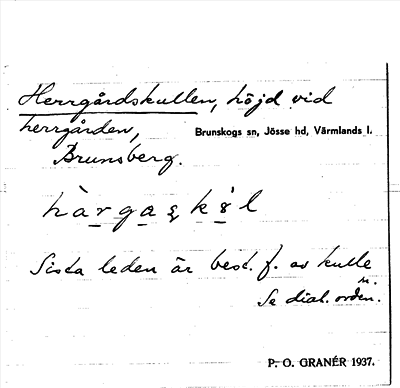 Herrgårdskullen, höjd vid
herrgården, Brunskogs sn, Jösse hd, Värmlands l.
Brunsberg.
Sista leden är best. f. av kulle
Se dial. orden.
P. O. GRANÉR 1937.